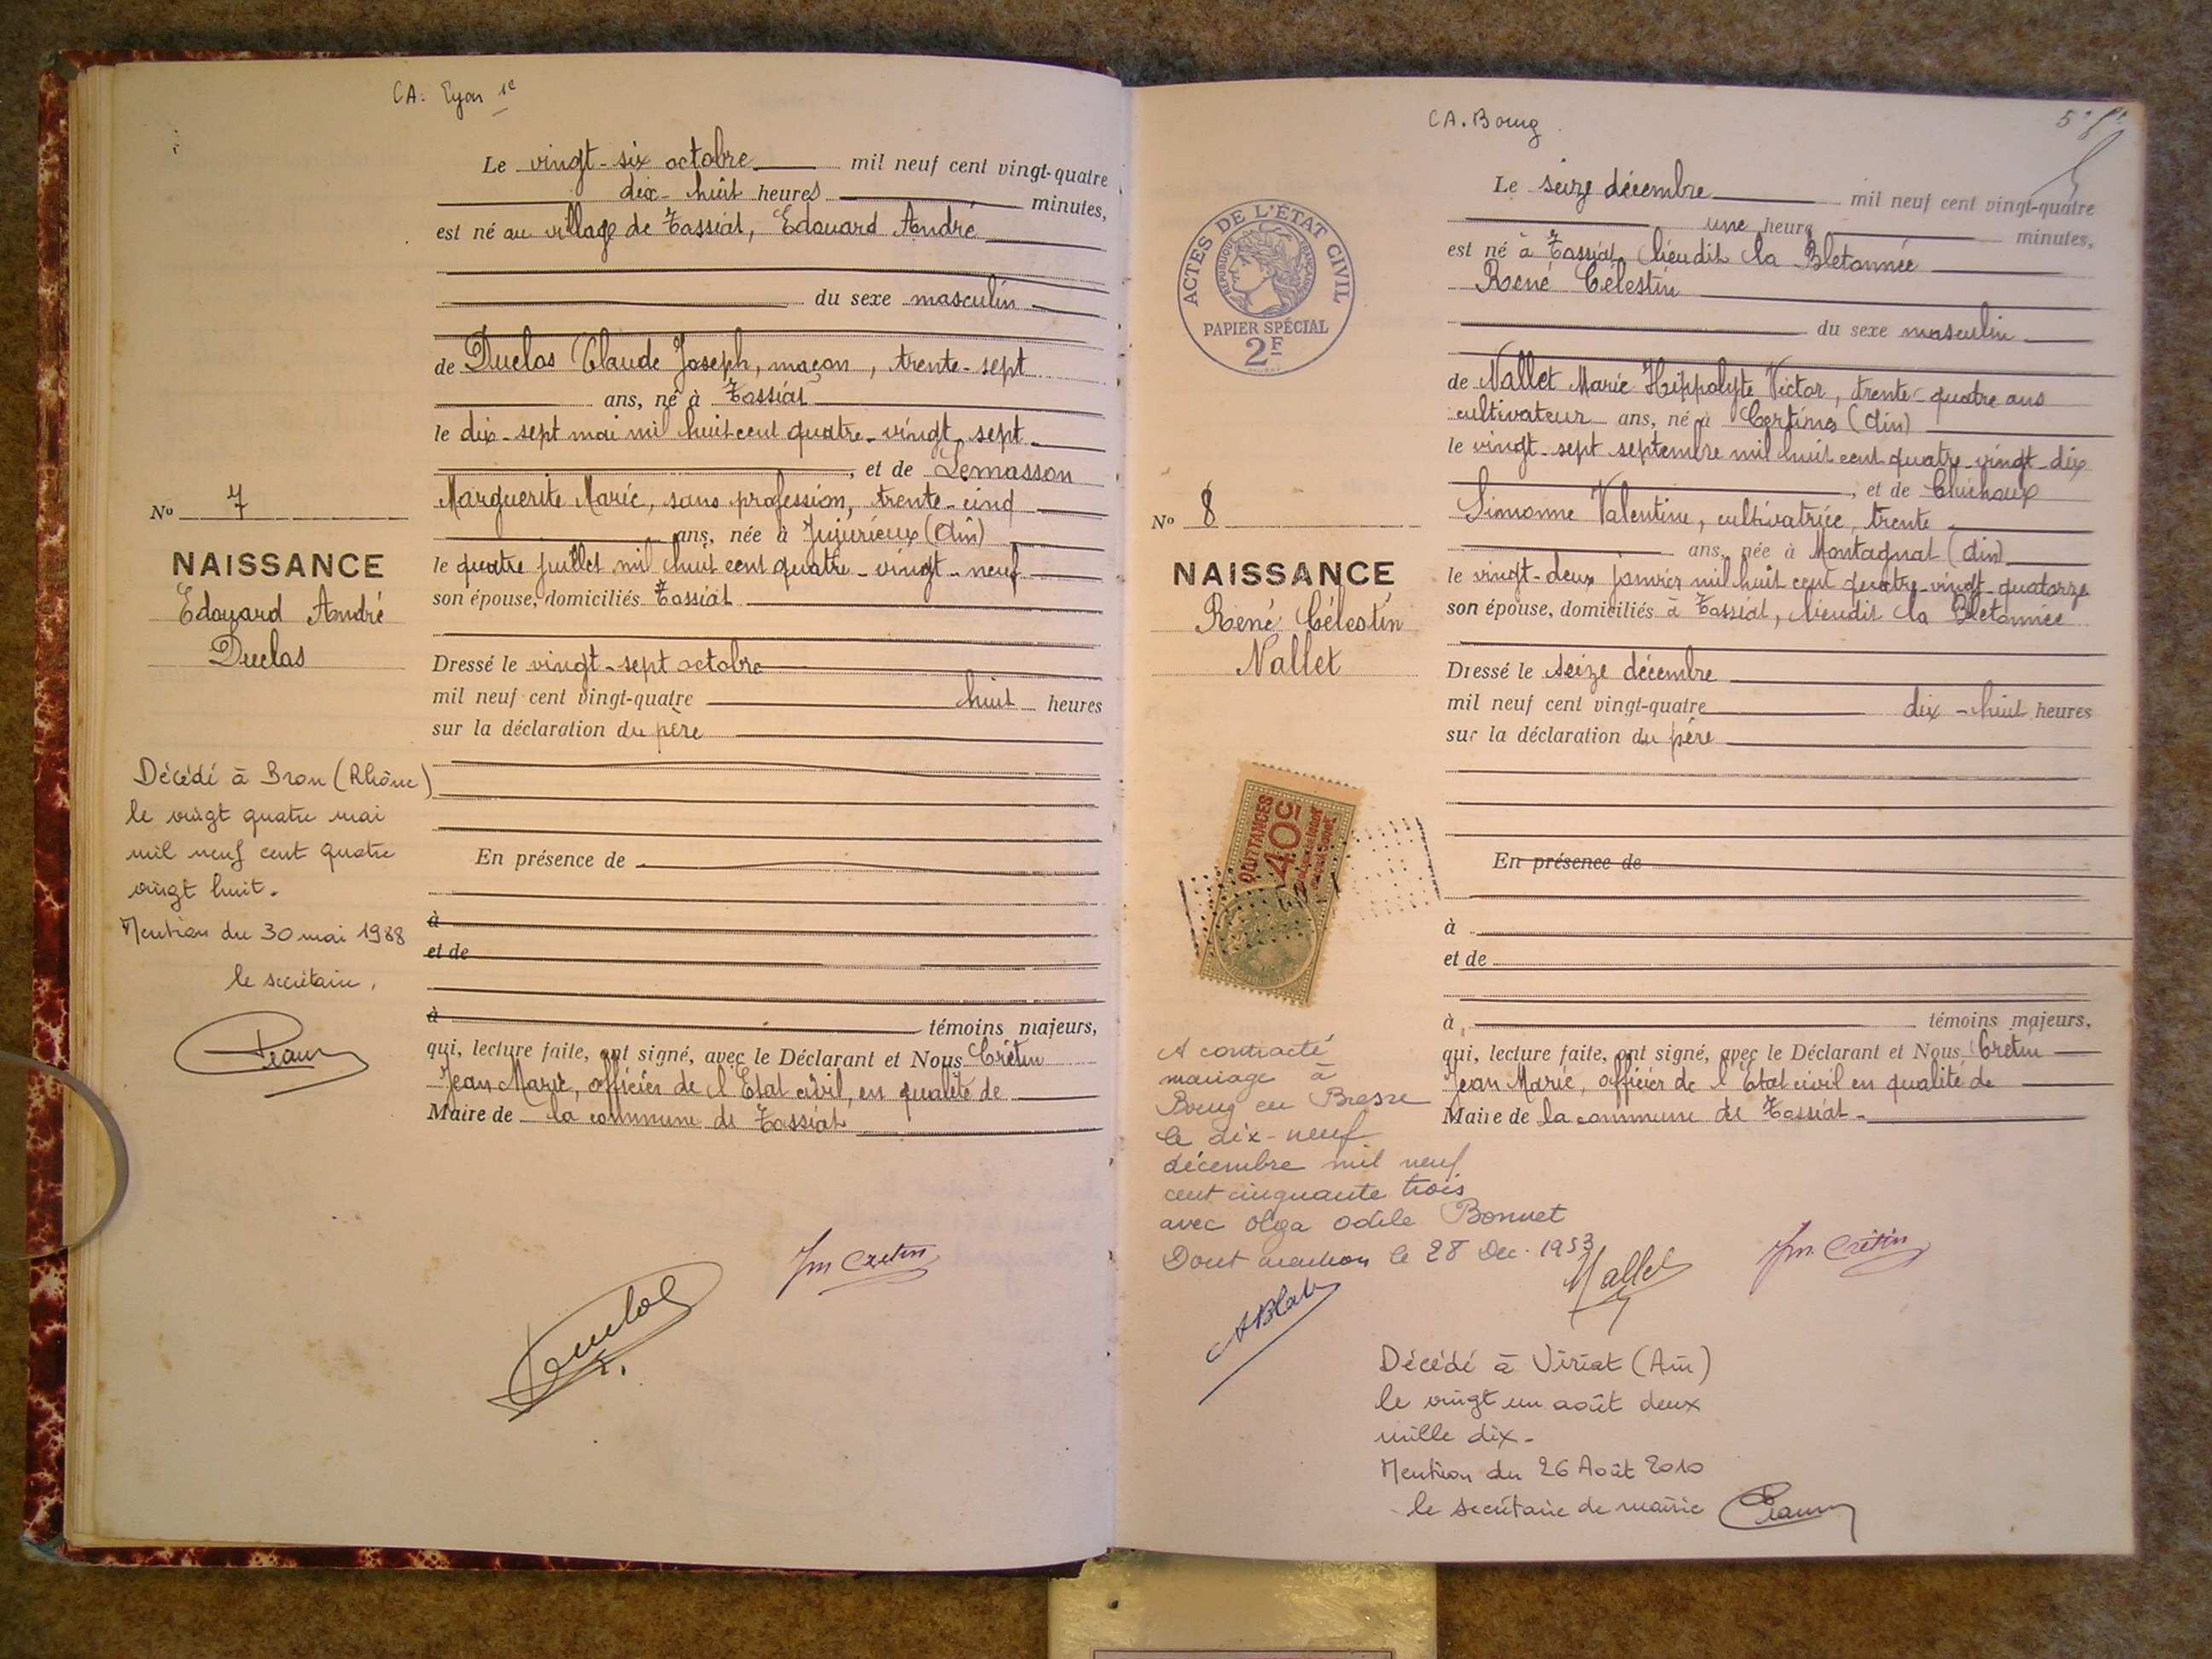 CA. Lyon 1e
Le vingt-six octobre mil neuf cent vingt-quatre
dix-huit heures minutes,
est né au village de Tossiat, Edouard André
du sexe masculin
de Duclos Claude Joseph, maçon, trente-sept
ans, né à Tossiat
le dix-sept mai mil huit cent quatre-vingt-sept
, et de Lemasson
Marguerite Marie, sans profession, trente-cinq
ans, née à Jujurieux (Ain)
le quatre juillet mil huit cent quatre-vingt-neuf
son épouse, domiciliés Tossiat
Dressé le vingt-sept octobre
mil neuf cent vingt-quatre huit heures
sur la déclaration du père
En présence de
à
et de
à témoins majeurs,
qui, lecture faite, ont signé, avec le Déclarant et Nous Crétin
Jean Marie, officier de l'Etat civil, en qualité de
Maire de la commune de Tossiat
No 7
NAISSANCE
Edouard André
Duclos
Décédé à Bron (Rhône)
le vingt quatre mai
mil neuf cent quatre
vingt huit.
Mention du 30 mai 1988
le secrétaire,
Duclos
Jm Cretin
CA. Bourg
Le seize décembre mil neuf cent vingt-quatre
une heure minutes,
est né à Tossiat, lieudit la Bletonnée
René Célestin
du sexe masculin
de Nallet Marie Hippolyte Victor, trente-quatre ans
cultivateur ans, né à Certines (Ain)
le vingt-sept septembre mil huit cent quatre-vingt-dix
, et de Chichoux
Simonne Valentine, cultivatrice, trente
ans, née à Montagnat (Ain)
le vingt-deux janvier mil huit cent quatre-vingt-quatorze
son épouse, domiciliés à Tossiat, lieudit la Bletonnée
Dressé le seize décembre
mil neuf cent vingt-quatre dix-huit heures
sur la déclaration du père
En présence de
à
et de
à témoins majeurs,
qui, lecture faite, ont signé, avec le Déclarant et Nous Crétin
Jean Marie, officier de l'Etat civil en qualité de
Maire de la commune de Tossiat.
ACTES DE L'ÉTAT CIVIL
RÉPUBLIQUE FRANÇAISE
PAPIER SPÉCIAL
2F
No 8
NAISSANCE
René Célestin
Nallet
QUITTANCES
40c
A contracté
mariage à
Bourg en Bresse
le dix-neuf
décembre mil neuf
cent cinquante trois
avec Olga Odile Bonnet
Dont mention le 28 Dec. 1953
Nallet
Jm. Crétin
Décédé à Viriat (Ain)
le vingt un août deux
mille dix.
Mention du 26 Août 2010
le secrétaire de mairie